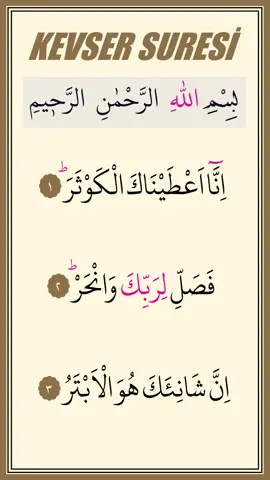 KEVSER SURESİ
بِسْمِ اللهِ الرَّحْمٰنِ الرَّحٖيمِ
اِنَّٓا اَعْطَيْنَاكَ الْكَوْثَرَۜ ﴿١﴾
فَصَلِّ لِرَبِّكَ وَانْحَرْۜ ﴿٢﴾
اِنَّ شَانِئَكَ هُوَ الْاَبْتَرُ ﴿٣﴾